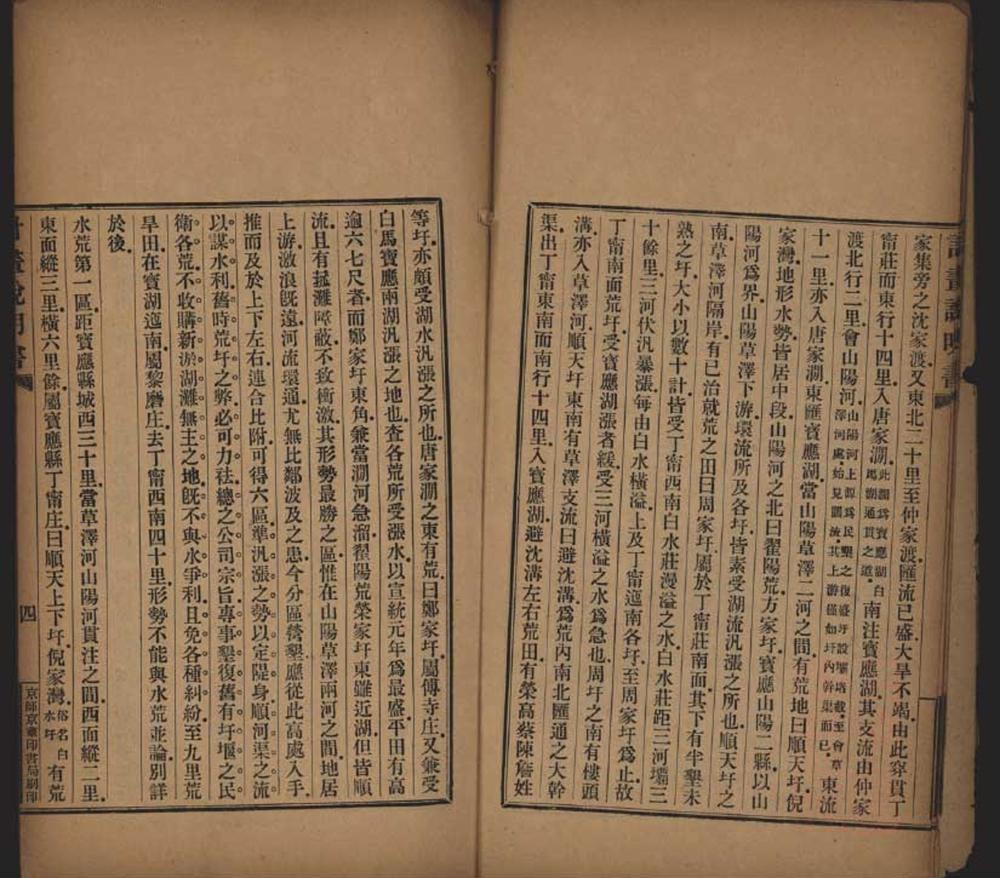 計畫說明書
家集旁之沈家渡又東北二十里至仲家渡匯流已盛大旱不竭由此穿貫丁
甯莊而東行十四里入唐家澗此澗爲寶應湖白馬湖通貫之道南注寶應湖其支流由仲家
渡北行二里會山陽河山陽河上源爲民墾之復盛圩設壩堵截至會草澤河處始見澗流其上游僅如圩內幹渠而已東流
十一里亦入唐家澗東匯寶應湖當山陽草澤二河之間有荒地曰順天圩倪
家灣地形水勢皆居中段山陽河之北曰翟陽荒方家圩寶應山陽二縣以山
陽河爲界山陽草澤下游環流所及各圩皆素受湖流汎漲之所也順天圩之
南草澤河隔岸有已治就荒之田曰周家圩屬於丁甯莊南面其下有半墾未
熟之圩大小以數十計皆受丁甯西南白水莊漫溢之水白水莊距三河壩三
十餘里三河伏汎暴漲每由白水橫溢上及丁甯迤南各圩至周家圩爲止故
丁甯南面荒圩受寶應湖漲者緩受三河橫溢之水爲急也周圩之南有樓頭
溝亦入草澤河順天圩東南有草澤支流曰避沈溝爲荒內南北匯通之大幹
渠出丁甯東南而南行十四里入寶應湖避沈溝左右荒田有榮高蔡陳詹姓
等圩亦頗受湖水汎漲之所也唐家澗之東有荒曰鄭家圩屬傅寺庄又兼受
白馬寶應兩湖汎漲之地也查各荒所受漲水以宣統元年爲最盛平田有高
逾六七尺者而鄭家圩東角兼當澗河急溜翟陽荒榮家圩東雖近湖但皆順
流且有菰灘障蔽不致衝激其形勢最勝之區惟在山陽草澤兩河之間地居
上游激浪既遠河流環通尤無比鄰波及之患今分區營墾應從此高處入手
推而及於上下左右連合比附可得六區準汎漲之勢以定隄身順河渠之流
以謀水利舊時荒圩之弊必可力祛總之公司宗旨專事墾復舊有圩堰之民
衛各荒不收購新淤湖灘無主之地既不與水爭利且免各種糾紛至九里荒
旱田在寶湖迤南屬黎磨庄去丁甯西南四十里形勢不能與水荒並論別詳
於後
水荒第一區距寶應縣城西三十里當草澤河山陽河貫注之間西面縱二里
東面縱三里橫六里餘屬寶應縣丁甯庄曰順天上下圩倪家灣俗名白水圩有荒
計畫說明書
四
京師京華印書局刷印